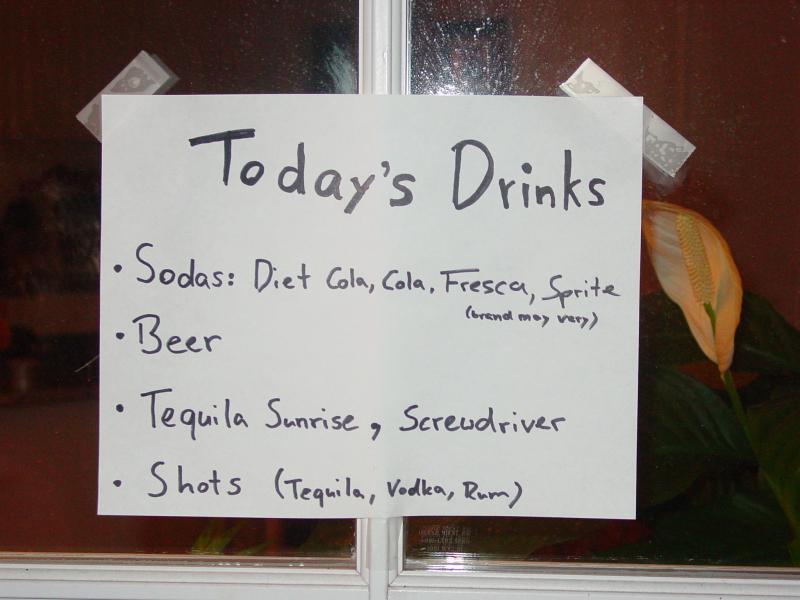 Today's Drinks
• Sodas: Diet Cola, Cola, Fresca, Sprite
(brand may very)
• Beer
• Tequila Sunrise, Screwdriver
• Shots (Tequila, Vodka, Rum)